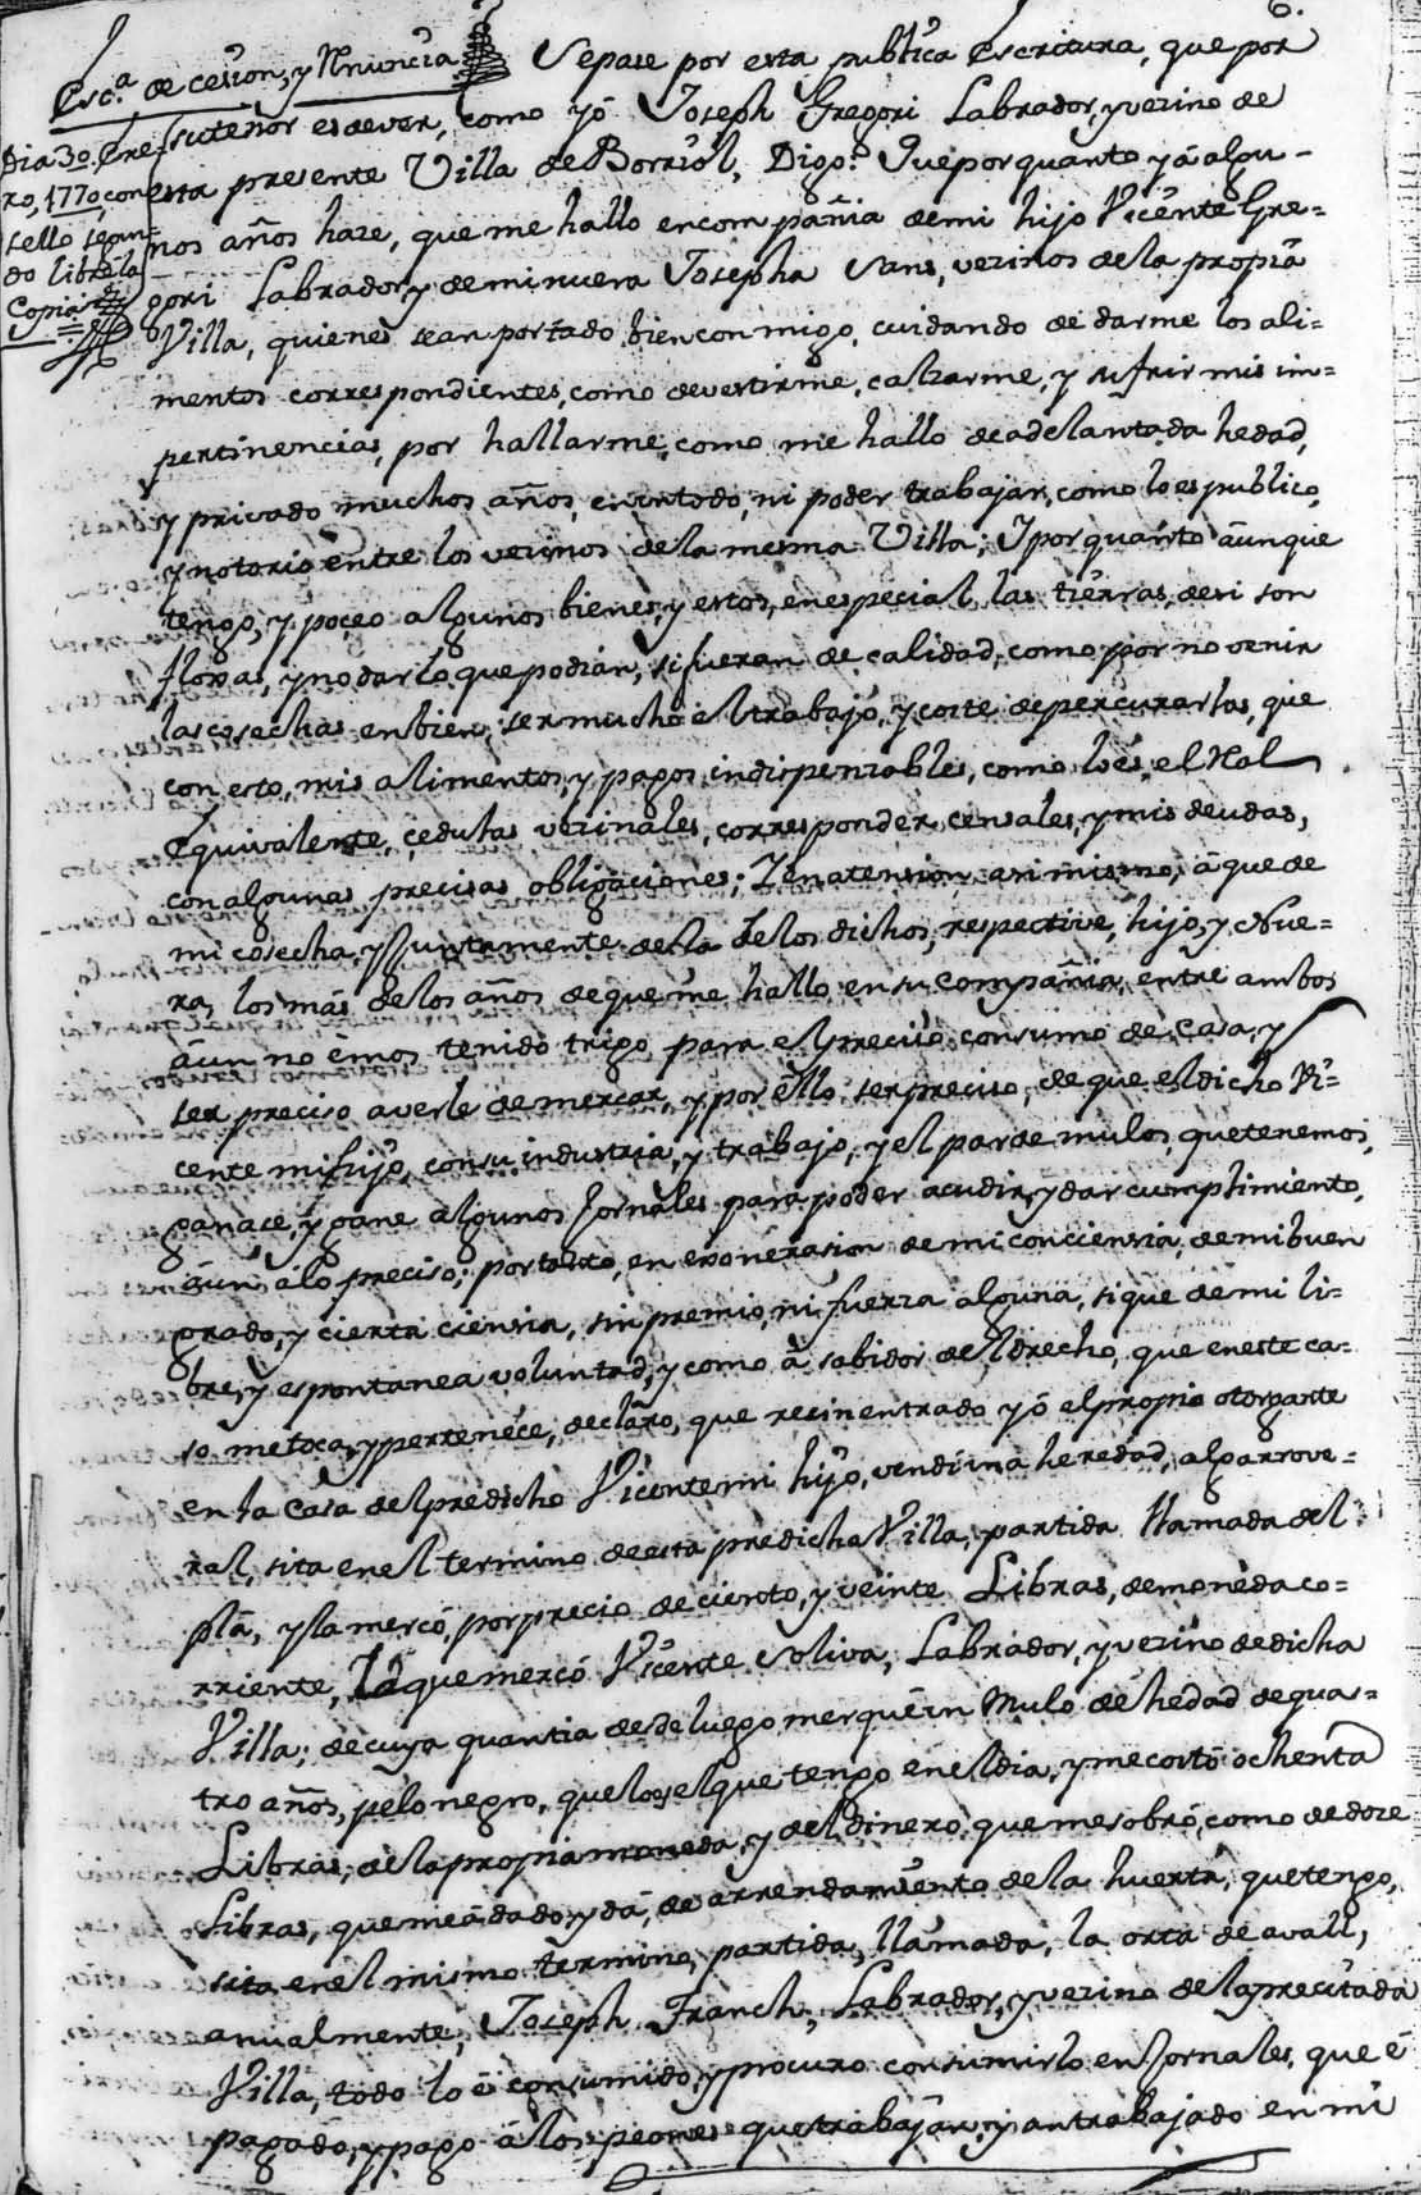 6.
Esc.ª de cesion, y Rnuncia
Dia 30 Ene-
ro, 1770, con
sello segun-
do libré la
Copia
Sepase por esta publica Escritura, que por
su tenor es de ver, como yó Joseph Gregori Labrador, y vezino de
esta presente Villa de Borriol, Digo: Que por quanto yá algu-
nos años haze, que me hallo en compañia de mi hijo Vicente Gre=
gori Labrador, y de mi nuera Josepha Sans, vezinos de la propiâ
Villa, quienes sean portado bien con migo, cuidando de darme los ali=
mentos correspondientes, como de vestirme, calzarme, y sufrir mis im=
pertinencias, por hallarme, como me hallo de adelantada hedad,
y privado muchos años, en un todo, ni poder trabajar, como lo es publico,
y notorio entre los vezinos de la mesma Villa; Y por quanto âunque
tengo, y poçeo algunos bienes, y estos, en especial las tierras, de si son
floxas, y no dar lo que podian, si fueran de calidad, como por no venir
las cosechas en bien; ser mucho el trabajo, y coste de percurarlas, que
con esto, mis alimentos, y pagos indispenzables, como lo és, el Rl.
Equivalente, çedulas vezinales, corresponder censales, y mis deudas,
con algunas precisas obligaciones; Y en atension asi mismo, â que de
mi cosecha, y Juntamente de la de los dichos, respective, hijo, y Nue=
ra, los más de los años de que me hallo en su compañia, entre ambos
âun no êmos tenido trigo para el preciso consumo de Casa, y
ser preciso averle de mercar, y por êllo ser preciso, de que el dicho Vi=
cente mi hijo, con su industria, y trabajo, y el par de mulos, que tenemos,
ganace, y gane algunos Jornales para poder acudir, y dar cumplimiento,
âun, âlo preciso; por tanto, en exonerasion de mi conciensia, de mi buen
grado, y cierta ciensia, sin premio, ni fuerza alguna, si que de mi li=
bre, y espontanea voluntad, y como â sabidor de el drecho, que en este ca=
so me toca, y pertenéce, declaro, que recin entrado yó el propio otorgante
en la Casa del predicho Vicente mi hijo, vendi una heredad, algarrove=
ral, sita en el termino de esta predicha Villa, partida llamada del
plâ, y la mercó, por precio de ciento, y veinte Libras, de monêda co=
rriente, La que mercó Vicente Soliva, Labrador, y vezino de dicha
Villa; de cuya quantia desde luego merqué un Mulo de hedad de qua=
tro años, pelo negro, que lo es el que tengo en el dia, y me costó ochenta
Libras, de la propia moneda, y del dinero, que me sobró, como de doze
Libras, que me â dado, y dá, de arrendamiento de la huerta, que tengo,
sita en el mismo termino, partida, llamada, la orta de avall,
anualmente, Joseph Franch, Labrador, y vezino de la precitada
Villa, todo lo ê consumido, y procuro consumirlo en Jornales, que ê
pagado, y pago â los peones que trabajan, y an trabajado en mi